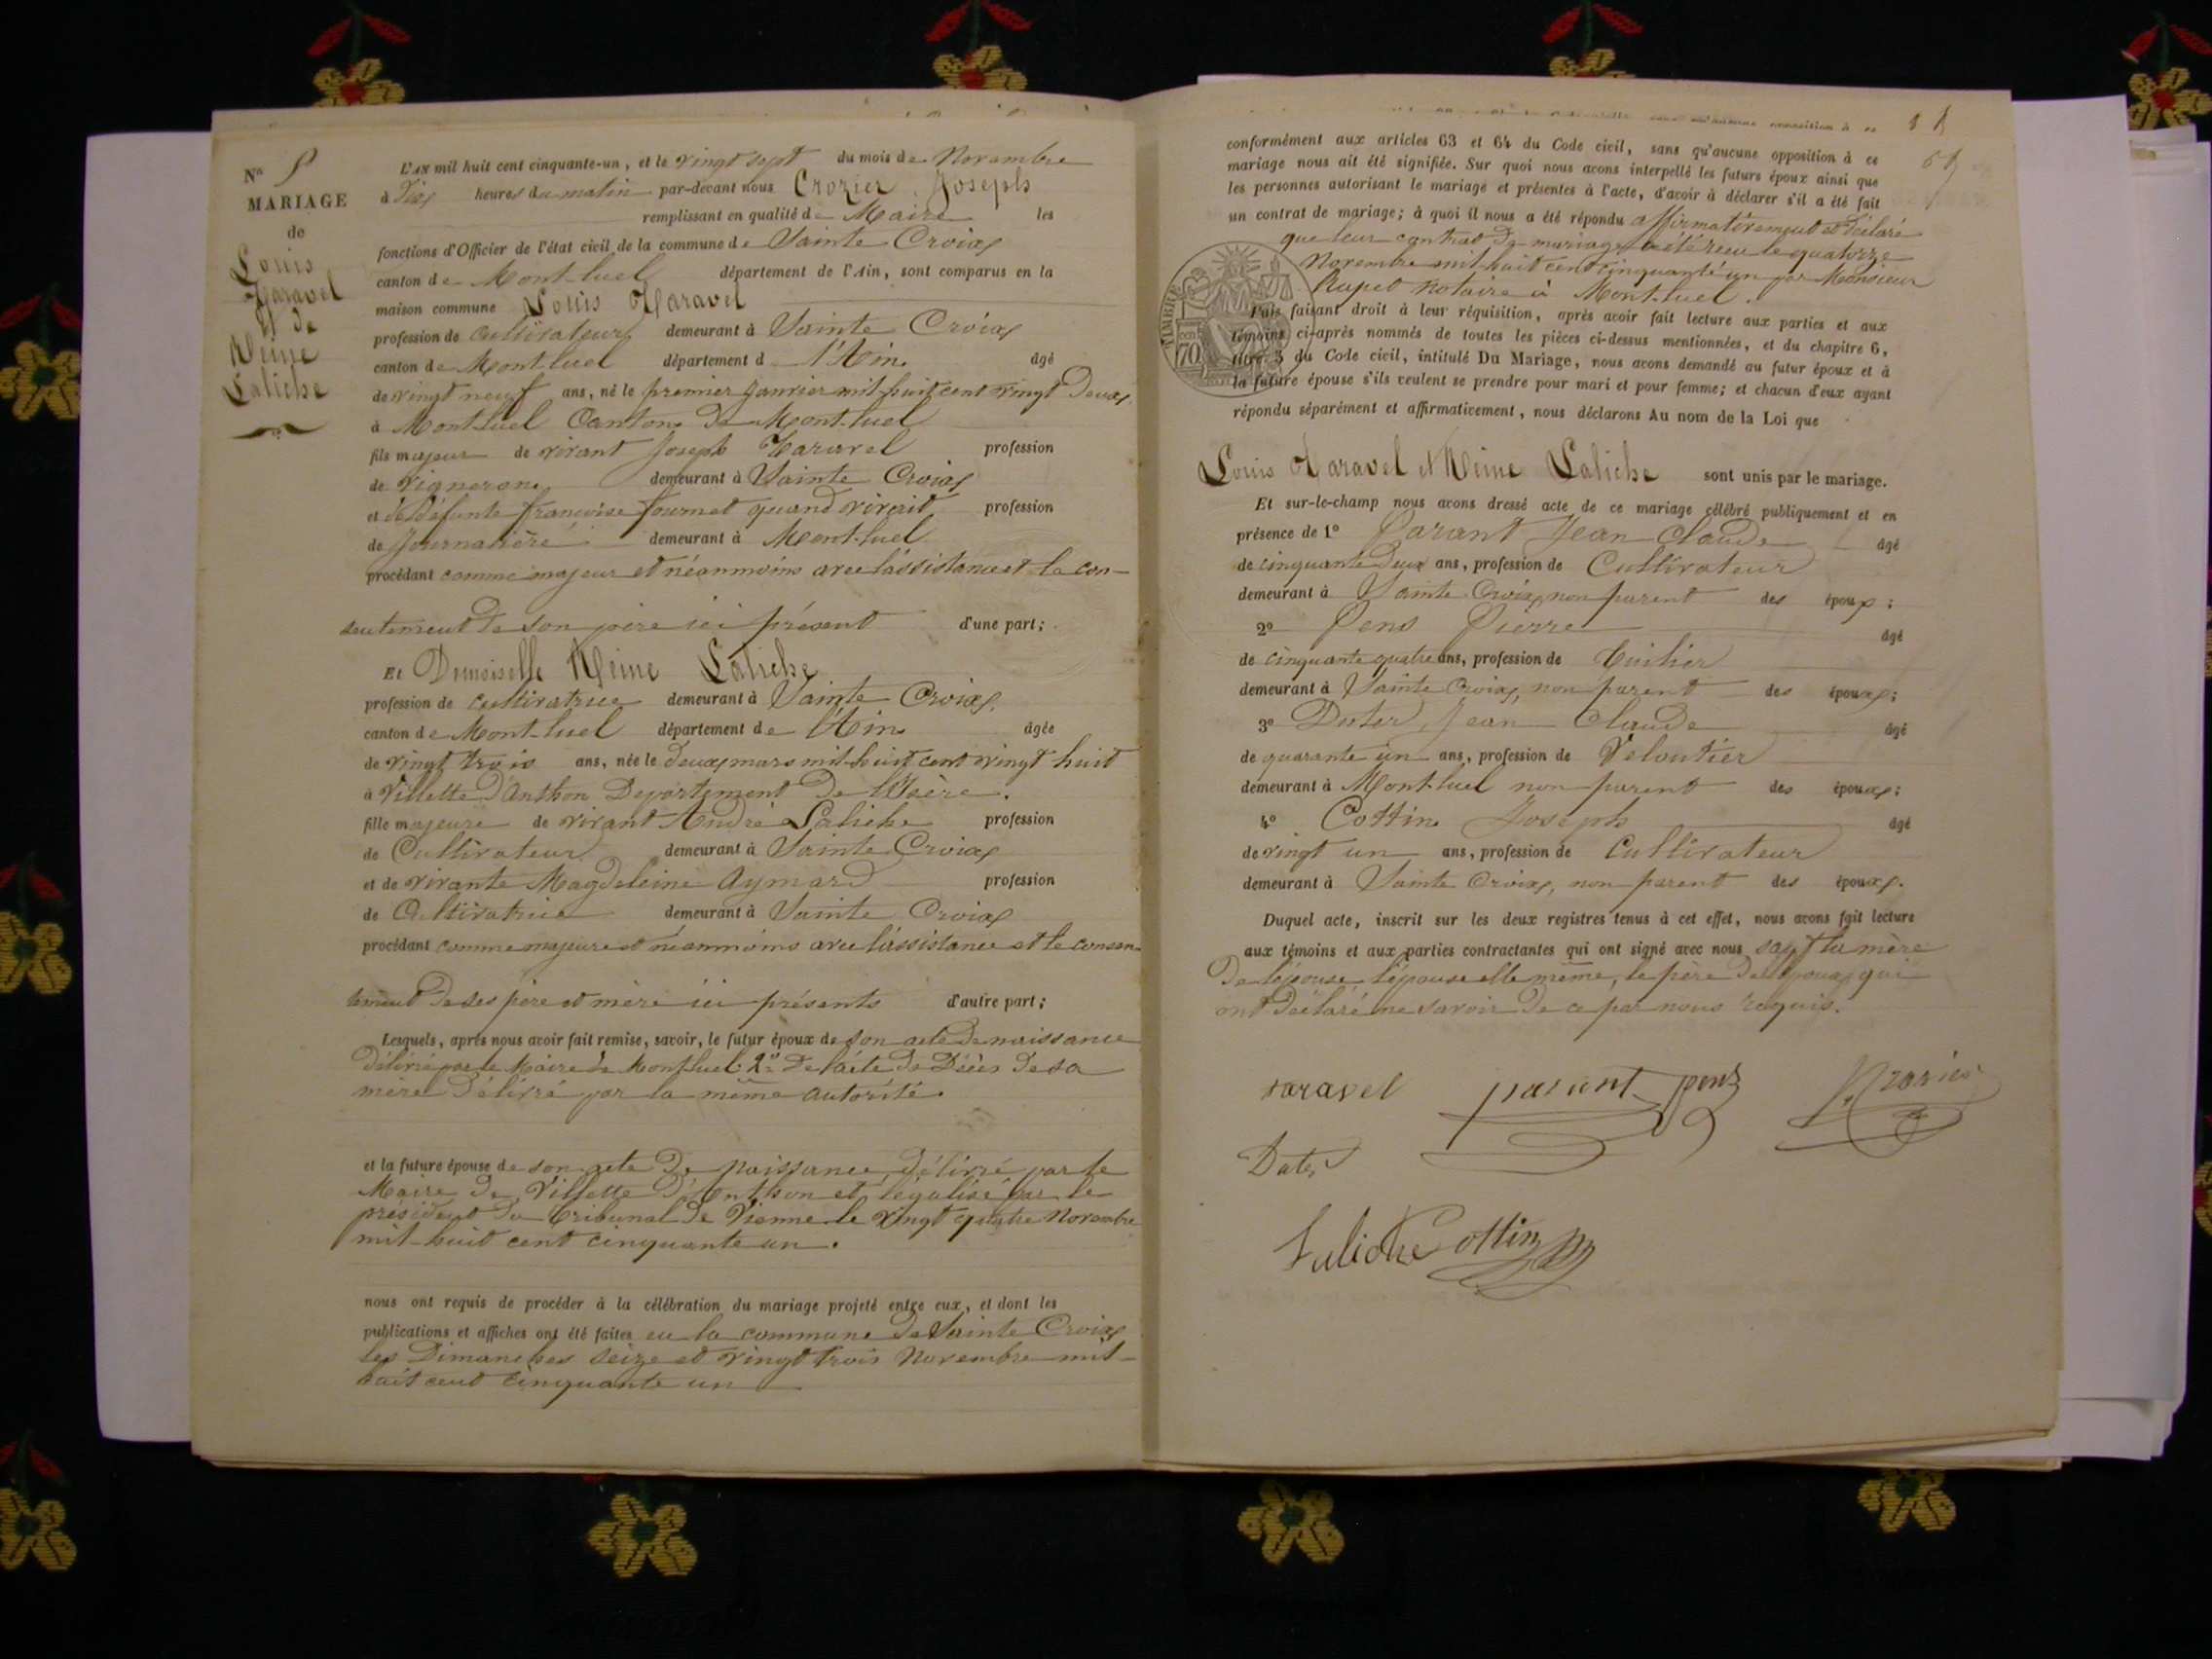 MARIAGE
de
Louis
Taravel
et de
Mime
Saliche
L'AN mil huit cent cinquante-un, et le vingt sept du mois de Novembre
à Dix heures du matin par-devant nous Crozier Joseph
remplissant en qualité de Maire les
fonctions d'Officier de l'état civil de la commune de Sainte Croix
canton de Mont-luel département de l'Ain, sont comparus en la
maison commune Louis Taravel
profession de Cultivateur demeurant à Sainte Croix
canton de Montluel département d l'Ain âgé
de vingt neuf ans, né le premier Janvier mil huit cent vingt Deux
à Mont-luel Canton de Mont-luel
fils majeur de vivant Joseph Taravel profession
de vigneron demeurant à Sainte Croix
et de Défunte françoise fournet quand vivait profession
de Journalière demeurant à Mont-luel
procédant comme majeur et néanmoins avec l'assistance et le con-
sentement de son père ici présent d'une part;
Et Demoiselle Mime Saliche
profession de cultivatrice demeurant à Sainte Croix
canton de Mont-luel département de l'Ain âgée
de vingt trois ans, née le deux mars mil huit cent vingt huit
à Villette d'Anthon Département de l'Isère.
fille majeure de vivant André Saliche profession
de Cultivateur demeurant à Sainte Croix
et de vivante Magdeleine Aymard profession
de Cultivatrice demeurant à Sainte Croix
procédant comme majeure et néanmoins avec l'assistance et le consen-
tement de ses père et mère ici présents d'autre part;
Lesquels, après nous avoir fait remise, savoir, le futur époux de son acte de naissance
délivré par le Maire de Montluel 2° De l'acte de Décès de sa
mère Délivré par la même autorité.
et la future épouse de son acte De Naissance, délivré par le
Maire de Villette d'Anthon et légalisé par le
président du tribunal de Vienne le vingt quatre Novembre
mil huit cent cinquante un.
nous ont requis de procéder à la célébration du mariage projeté entre eux, et dont les
publications et affiches ont été faites en la commune de Sainte Croix
les Dimanches seize et vingt trois Novembre mil-
huit cent cinquante un
conformément aux articles 63 et 64 du Code civil, sans qu'aucune opposition à ce
mariage nous ait été signifiée. Sur quoi nous avons interpellé les futurs époux ainsi que
les personnes autorisant le mariage et présentes à l'acte, d'avoir à déclarer s'il a été fait
un contrat de mariage; à quoi il nous a été répondu affirmativement et déclaré
que leur contrat de mariage a été reçu le quatorze
Novembre mil huit cent cinquante un par Monsieur
Rapet notaire à Mont-luel.
TIMBRE
70
Puis faisant droit à leur réquisition, après avoir fait lecture aux parties et aux
témoins ci-après nommés de toutes les pièces ci-dessus mentionnées, et du chapitre 6,
titre 5 du Code civil, intitulé Du Mariage, nous avons demandé au futur époux et à
la future épouse s'ils veulent se prendre pour mari et pour femme; et chacun d'eux ayant
répondu séparément et affirmativement, nous déclarons Au nom de la Loi que
Louis Taravel et Mime Saliche sont unis par le mariage.
Et sur-le-champ nous avons dressé acte de ce mariage célébré publiquement et en
présence de 1° Parant Jean Claude âgé
de cinquante deux ans, profession de Cultivateur
demeurant à Sainte Croix, non parent des époux;
2° Pens Pierre âgé
de cinquante quatre ans, profession de Tuilier
demeurant à Sainte Croix, non parent des époux;
3° Duter Jean Claude âgé
de quarante un ans, profession de Veloutier
demeurant à Mont-luel non parent des époux;
4° Cottin Joseph âgé
de vingt un ans, profession de Cultivateur
demeurant à Sainte Croix, non parent des époux.
Duquel acte, inscrit sur les deux registres tenus à cet effet, nous avons fait lecture
aux témoins et aux parties contractantes qui ont signé avec nous sauf la mère
De l'épouse l'épouse elle même, le père de l'époux qui
ont déclaré ne savoir de ce par nous requis.
taravel parent penz
Saliche Cottin